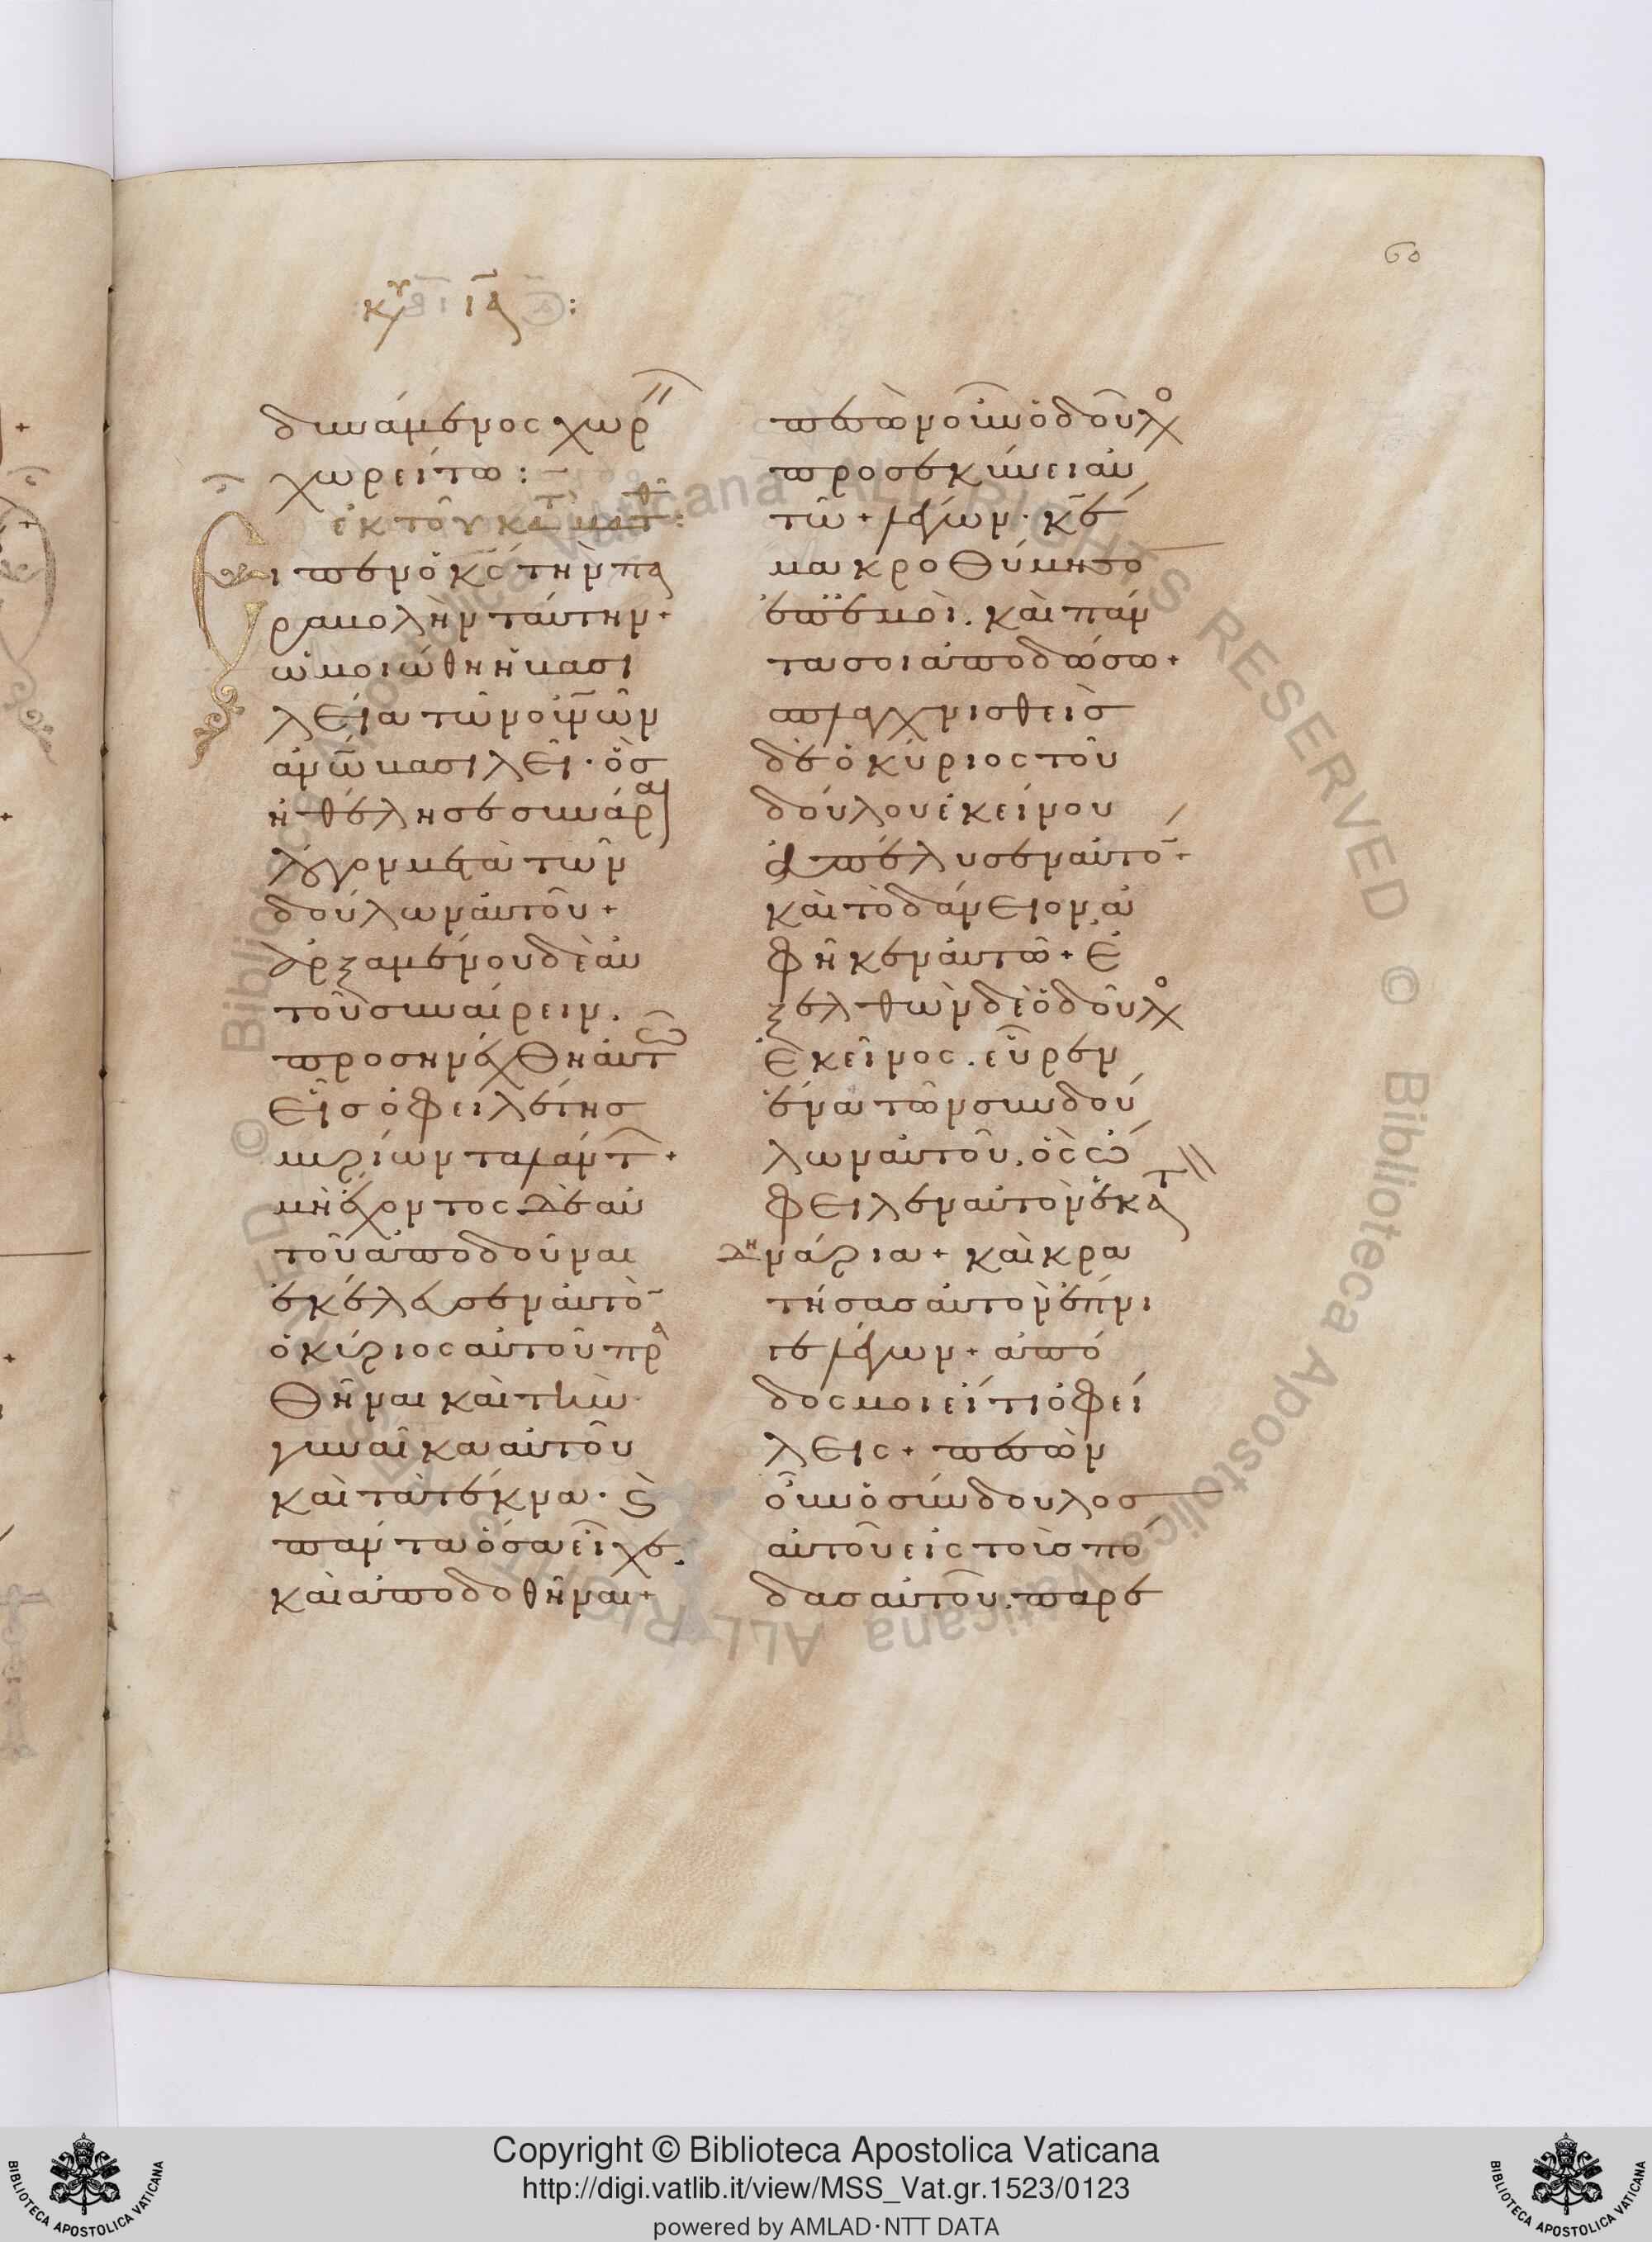 60
κυ ια :
δυνάμενος χωρ
χωρείτω :
ἐκ τοῦ κατ ματθ :
Εἶπεν ὁ κς τὴν πα
ραβολὴν ταύτην +
ὡμοιώθη ἡ βασι
λεία τῶν οὐνῶν
ἀνω βασιλεῖ · ὃσ
ἠθέλησε συνάραι
λόγον μετὰ τῶν
δούλων αὐτοῦ +
ἀρξαμένου δὲ αὐ
τοῦ συναίρειν .
προσηνέχθη αὐτῶ
εἷσ ὀφειλέτησ
μυρίων ταλάντ +
μὴ ἔχοντος δὲ αὐ
τοῦ ἀποδοῦναι
ἐκέλευσεν αὐτὸ
ὁ κύριος αὐτοῦ πρα
θῆναι καὶ τὴν
γυναῖκα αὐτοῦ
καὶ τὰ τέκνα · ϛ
πάντα ὅσα εἶχε .
καὶ ἀποδοθῆναι +
πεσὼν οὖν ὁ δοῦλο
προσεκύνει αὐ
τῶ + λέγων · κε
μακροθύμησο
ἐπ ἐμοὶ . καὶ πάν
τα σοι ἀποδώσω +
σπλαγχνισθεὶσ
δὲ ὁ κύριος τοῦ
δούλου ἐκείνου
ἀπέλυσεν αὐτο +
καὶ τὸ δάνειον ἀ
φῆκεν αὐτῶ + ἐ
ξελθὼν δὲ ὁ δοῦλο
ἐκεῖνος . εὗρεν
ἕνα τῶν συνδού
λων αὐτοῦ . ὃς ὤ
φειλεν αὐτὸν ἑκατ
δηνάρια + καὶ κρα
τήσασ αὐτὸν ἔπνι
γε λέγων + ἀπό
δος μοι εἴ τι ὀφεί
λεις + πεσὼν
οὖν ὁ σύνδουλοσ
αὐτοῦ εἰς τοὺσ πό
δασ αὐτοῦ . παρε
Copyright © Biblioteca Apostolica Vaticana
http://digi.vatlib.it/view/MSS_Vat.gr.1523/0123
powered by AMLAD·NTT DATA